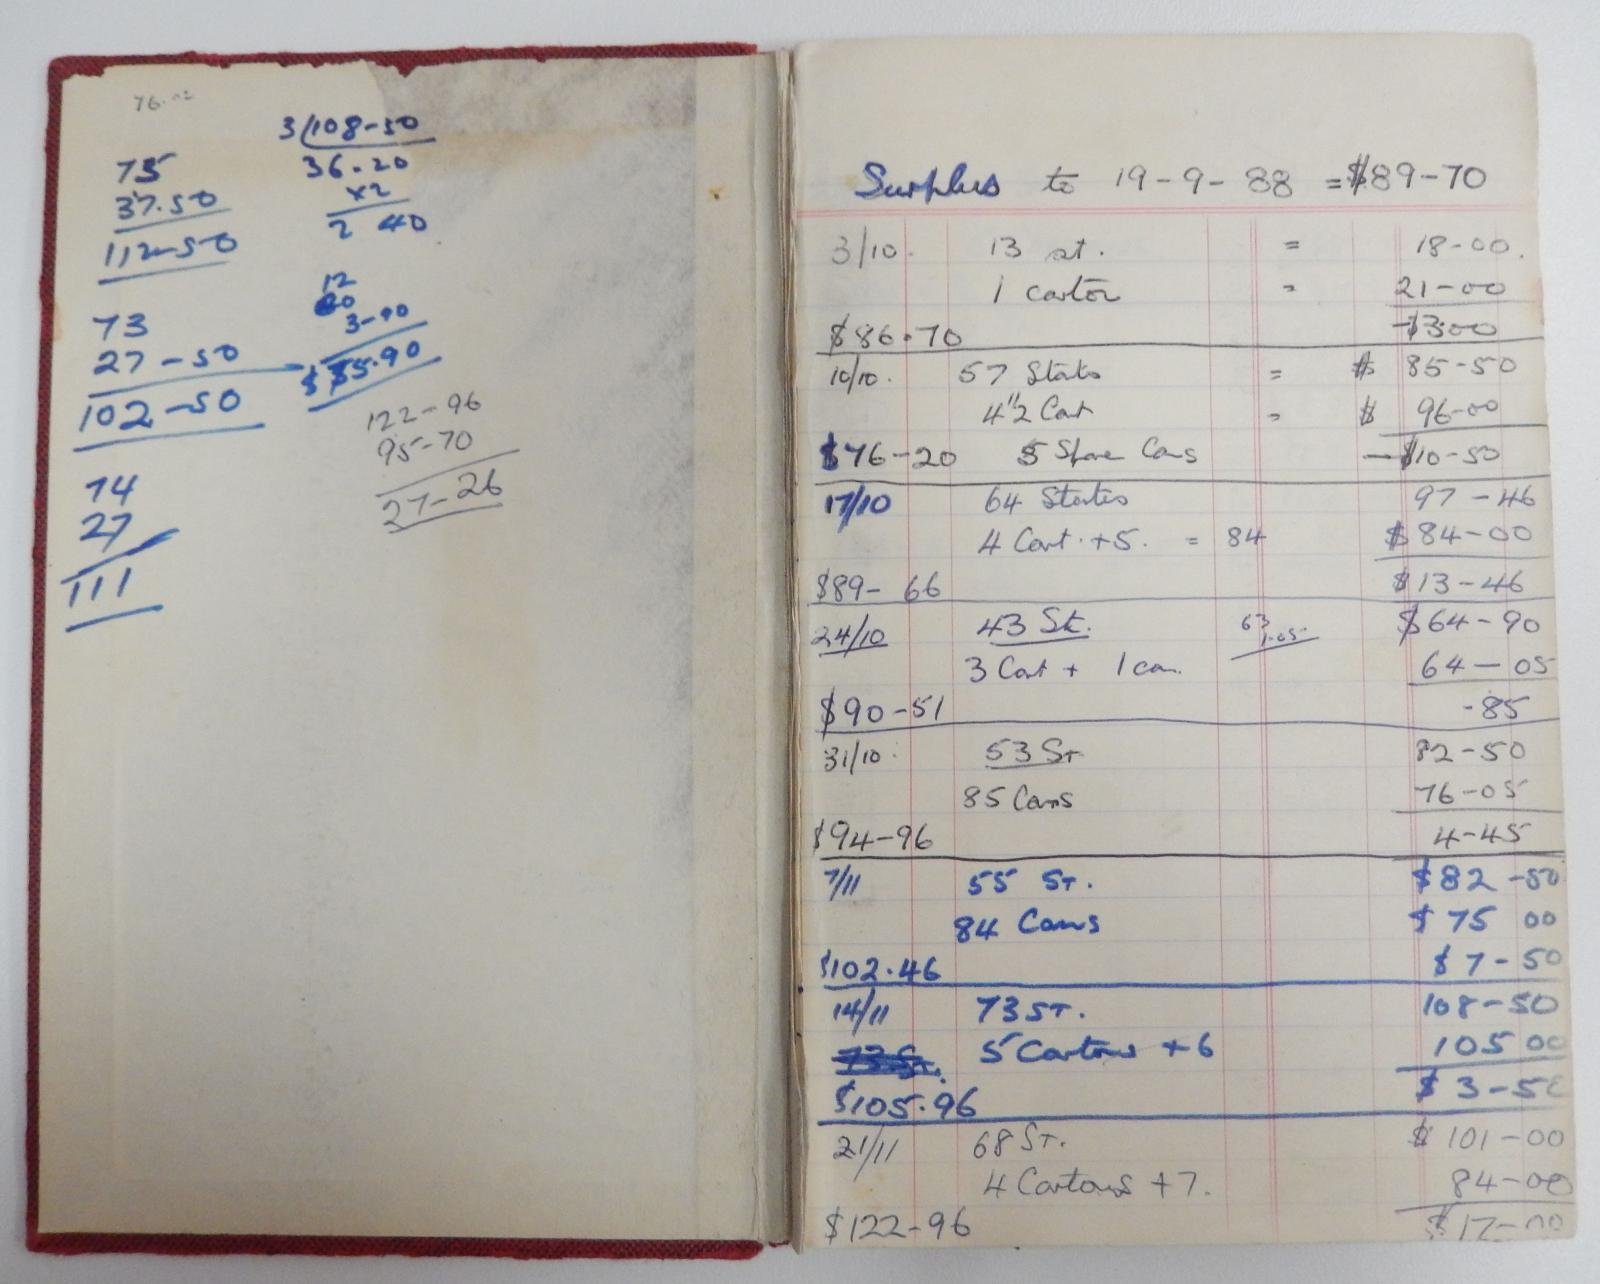 3/108-50
73
37.50
112-50
36.20
x2
2 40
73
27-50
102-50
12
20
3-90
$35.90
122-96
95-70
27-26
74
27
111
Surplus to 19-9-88 = $89-70
3/10. 13 st. = 18-00.
1 carton = 21-00
$86.70 -$3.00
10/10. 57 Starts = $ 85-50
4½ Cart = $ 96-00
$76-20 5 Spare Cans -$10-50
17/10 64 Starts 97-46
4 Cart. +5. = 84 $84-00
$89-66 $13-46
24/10 43 St. 63 1.05 $64-90
3 Cart + 1 can. 64-05
$90-51 -85
31/10. 53 St 82-50
85 Cans 76-05
$94-96 4-45
7/11 55 St. $82-50
84 Cans $75 00
$102.46 $7-50
14/11 73 ST. 108-50
5 Cartons +6 105 00
$105.96 $3-50
21/11 68 ST. $101-00
4 Cartons +7. 84-00
$122-96 $17-00